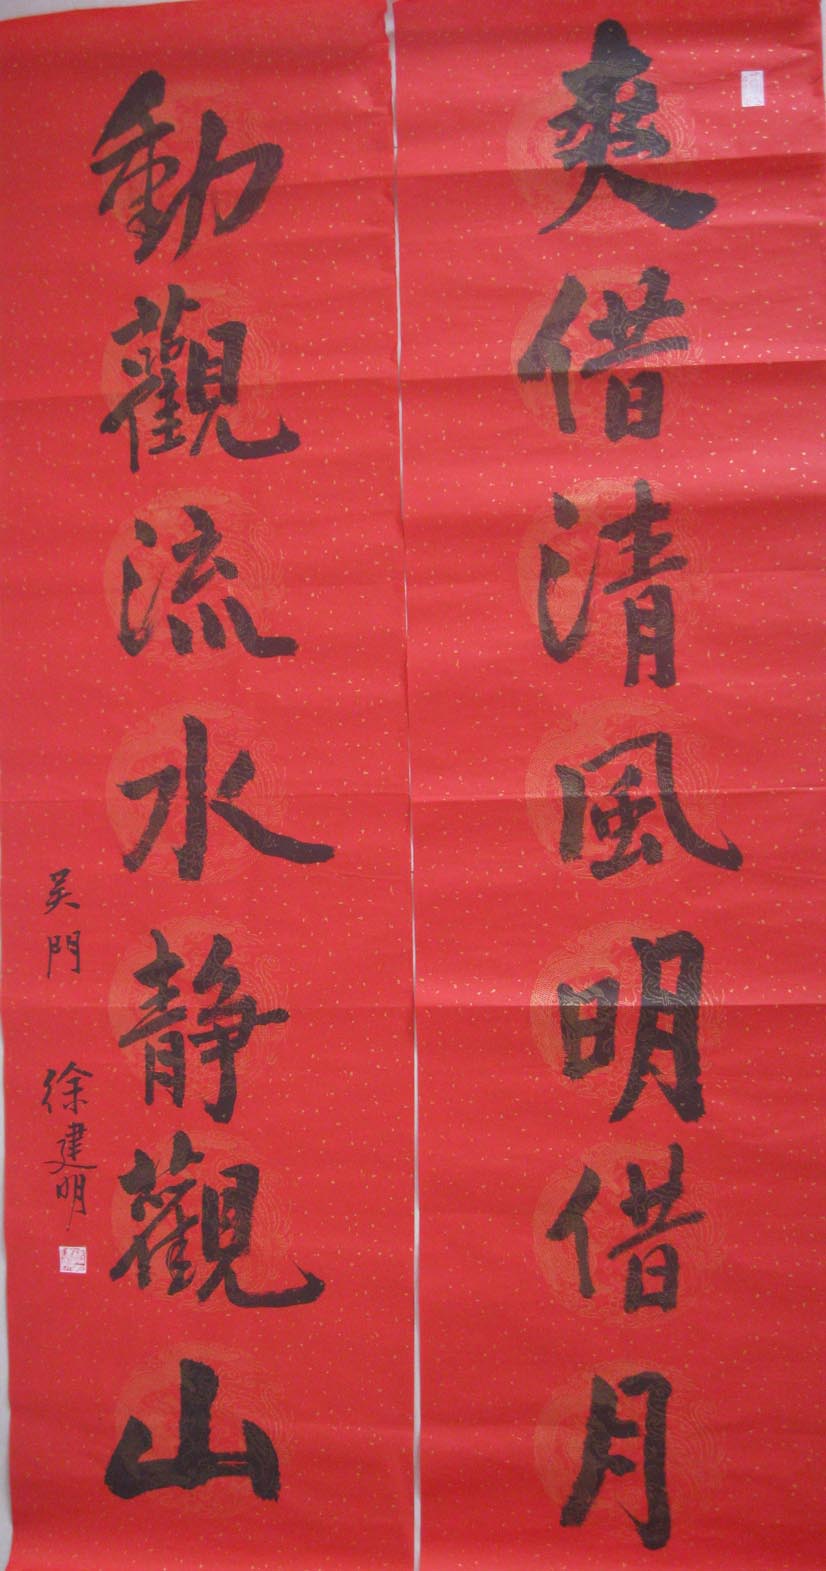 爽借清風明借月
動觀流水靜觀山
吴門 徐建明